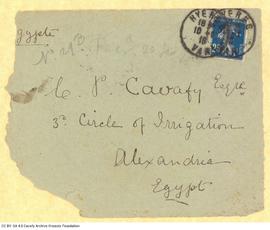 HYÈRES
VAR
Egypte
C. P. Cavafy Esqre
3d Circle of Irrigation
Alexandria
Egypt
CC BY-SA 4.0 Cavafy Archive Onassis Foundation